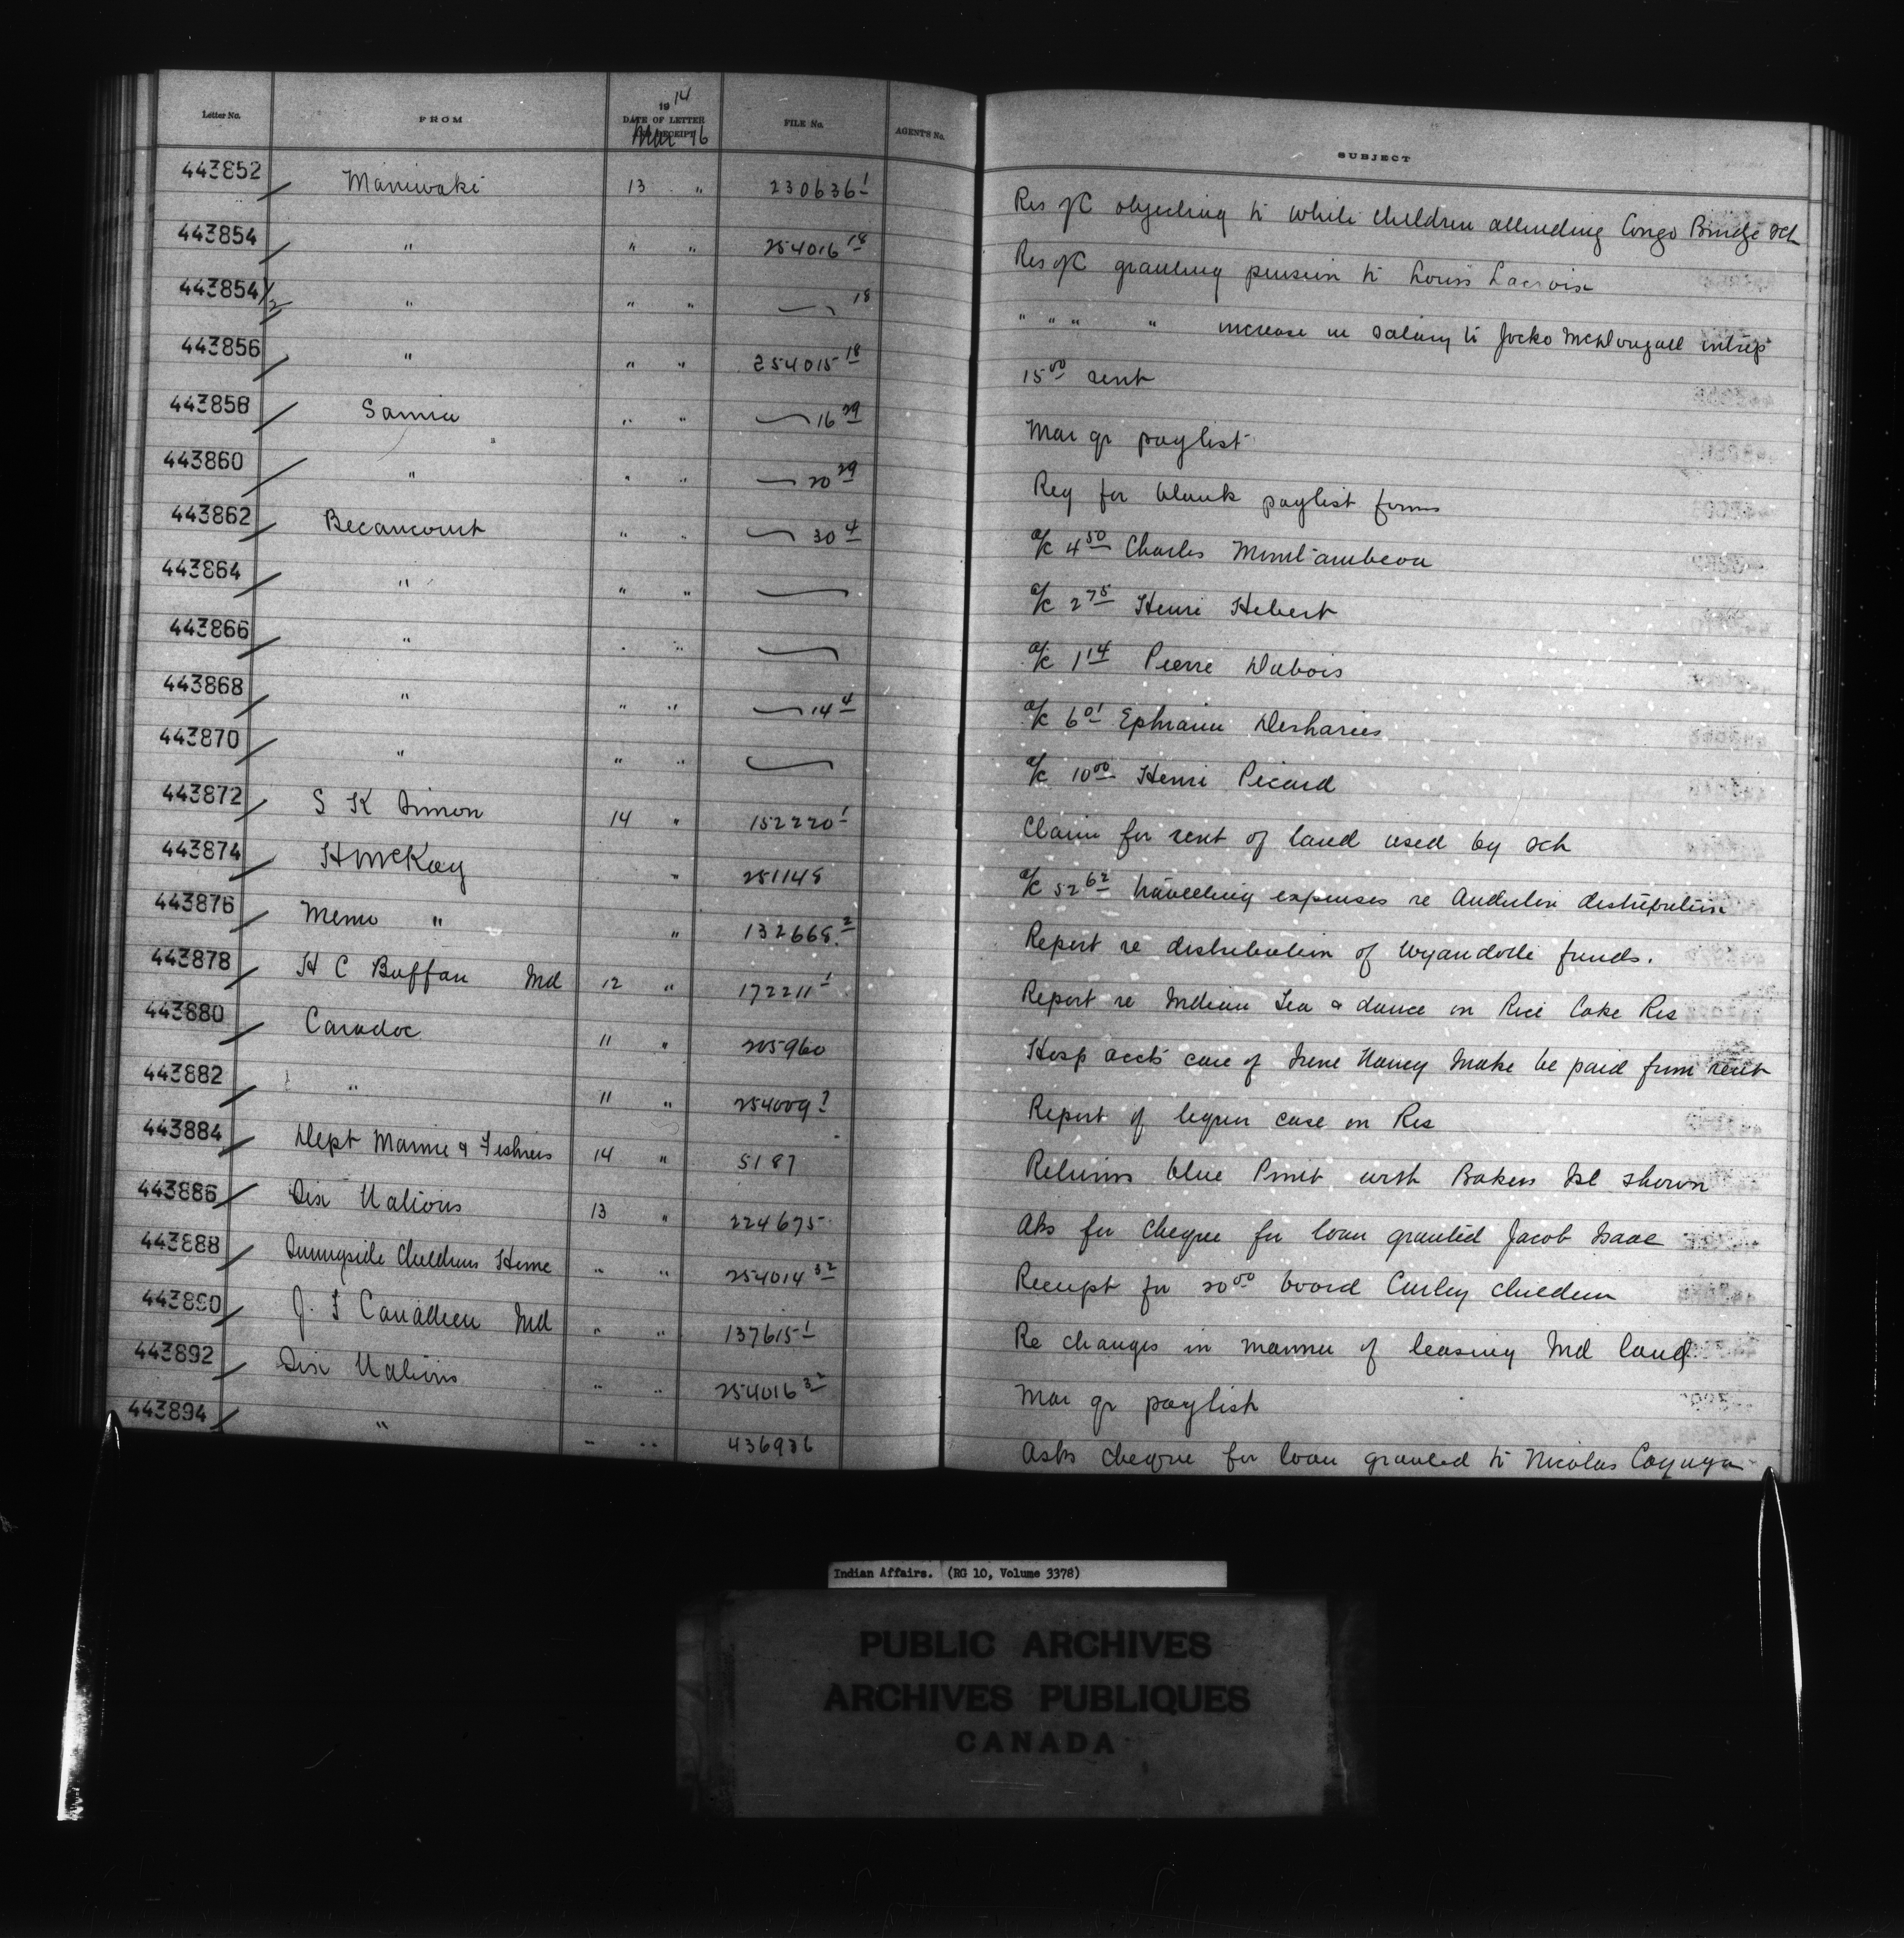 Letter No. FROM 1914 DATE OF LETTER AND RECEIPT FILE No. AGENT'S No. SUBJECT
Mar 16
443852 Maniwaki 13 " 230636 1 Res of C objecting to white children attending Congo Bridge Sch
443854 " " " 254016 18 Res of C granting pension to Louis Lacroix
443854 1/2 " " " — 18 " " " " increase in salary to Jocko McDougall interp
443856 " " " 254015 18 15 00 rent
443858 Sarnia " " — 16 29 Mar qr paylist
443860 " " " — 20 29 Req for blank paylist forms
443862 Becancourt " " — 30 4 a/c 4 50 Charles Montambeau
443864 " " " — a/c 2 75 Henri Hebert
443866 " " " — a/c 1 14 Pierre Dubois
443868 " " " — 14 4 a/c 6 01 Ephraim Desharies
443870 " " " — a/c 10 00 Henri Picard
443872 S K Simon 14 " 152220 1 Claim for rent of land used by sch
443874 H McKay " 251148 a/c 52 62 travelling expenses re Anderdon distribution
443876 Memo " " 132668 2 Report re distribution of Wyandotte funds.
443878 H C Buffan Ind 12 " 172211 1 Report re Indian Tea & dance on Rice Lake Res
443880 Caradoc 11 " 205960 Hosp accts care of Irene Nancy Make be paid from rent
443882 " 11 " 254009 2 Report of liquor case on Res
443884 Dept Marine & Fisheries 14 " 5187 Returns blue Print with Bakers Isl shown
443886 Six Nations 13 " 224675 Aks for cheque for loan granted Jacob Isaac
443888 Sunnyside Childrens Home " " 254014 32 Receipt for 20 00 board Curley children
443890 J. T Canadien Ind " " 137615 1 Re changes in manner of leasing Ind land
443892 Six Nations " " 254016 32 Mar qr paylist
443894 " " " 436926 Asks cheque for loan granted to Nicolas Cayuga
Indian Affairs. (RG 10, Volume 3378)
PUBLIC ARCHIVES
ARCHIVES PUBLIQUES
CANADA